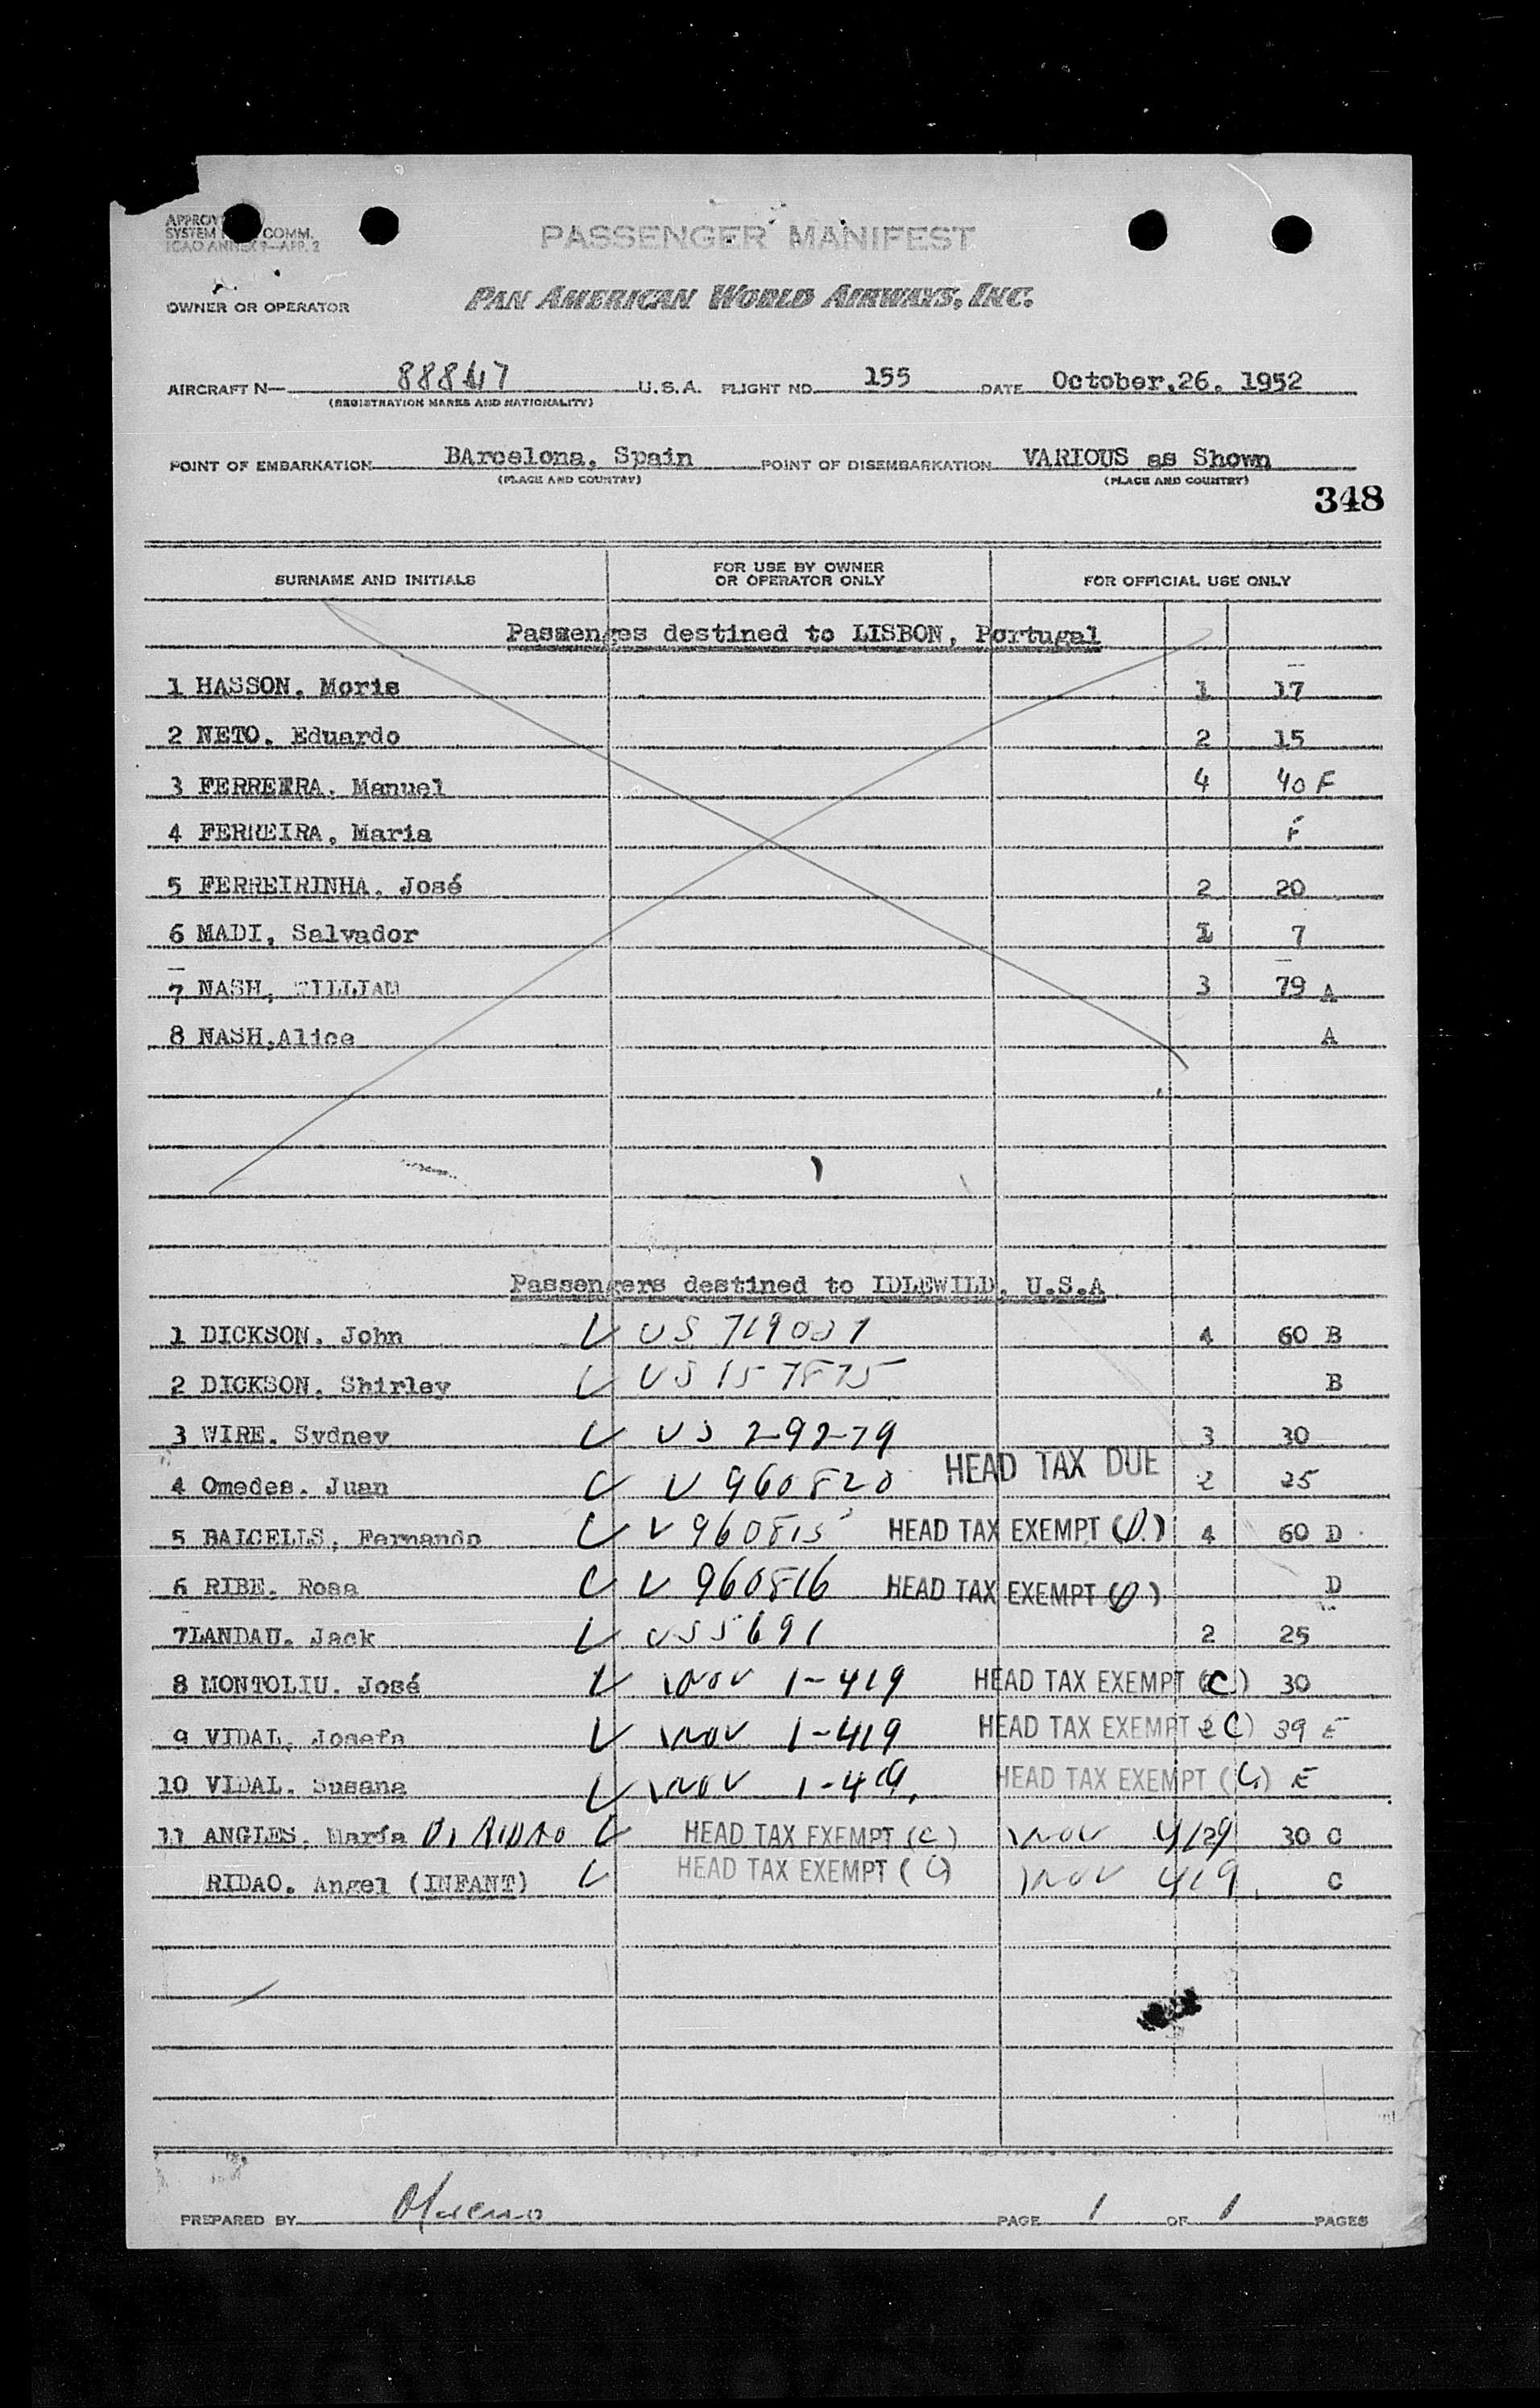 PASSENGER MANIFEST
SYSTEM COMM.
ICAO ANNEX 9—APP. 2
OWNER OR OPERATOR PAN AMERICAN WORLD AIRWAYS, INC.
AIRCRAFT N— 88847 U.S.A. FLIGHT NO. 155 DATE October.26. 1952
(REGISTRATION MARKS AND NATIONALITY)
POINT OF EMBARKATION BArcelona, Spain POINT OF DISEMBARKATION VARIOUS as Shown
(PLACE AND COUNTRY) (PLACE AND COUNTRY)
348
SURNAME AND INITIALS FOR USE BY OWNER OR OPERATOR ONLY FOR OFFICIAL USE ONLY
Passenges destined to LISBON, Portugal
1 HASSON. Moris 1 17
2 NETO. Eduardo 2 15
3 FERREIRA. Manuel 4 40 F
4 FERREIRA, Maria F
5 FERREIRINHA. José 2 20
6 MADI, Salvador 1 7
7 NASH, WILLIAM 3 79 A
8 NASH,Alice A
Passengers destined to IDLEWILD, U.S.A
1 DICKSON. John US 4 60 B
2 DICKSON, Shirley US 157875 B
3 WIRE. Sydney US 29279 3 30
4 Omedes. Juan V 960820 HEAD TAX DUE 2 25
5 BALCELLS, Fernando V 960815 HEAD TAX EXEMPT (D.) 4 60 D
6 RIBE. Rosa V 960816 HEAD TAX EXEMPT (D.) D
7LANDAU. Jack US5691 2 25
8 MONTOLIU. José 1-419 HEAD TAX EXEMPT (C.) 30
9 VIDAL, Josefa 1-419 HEAD TAX EXEMPT (C) 39 E
10 VIDAL. Susana 1-419. HEAD TAX EXEMPT (C.) E
11 ANGLES, María D. RIDAO HEAD TAX EXEMPT (C) 30 C
RIDAO. Angel (INFANT) HEAD TAX EXEMPT (C) 419 C
PREPARED BY Moreno PAGE 1 OF 1 PAGES